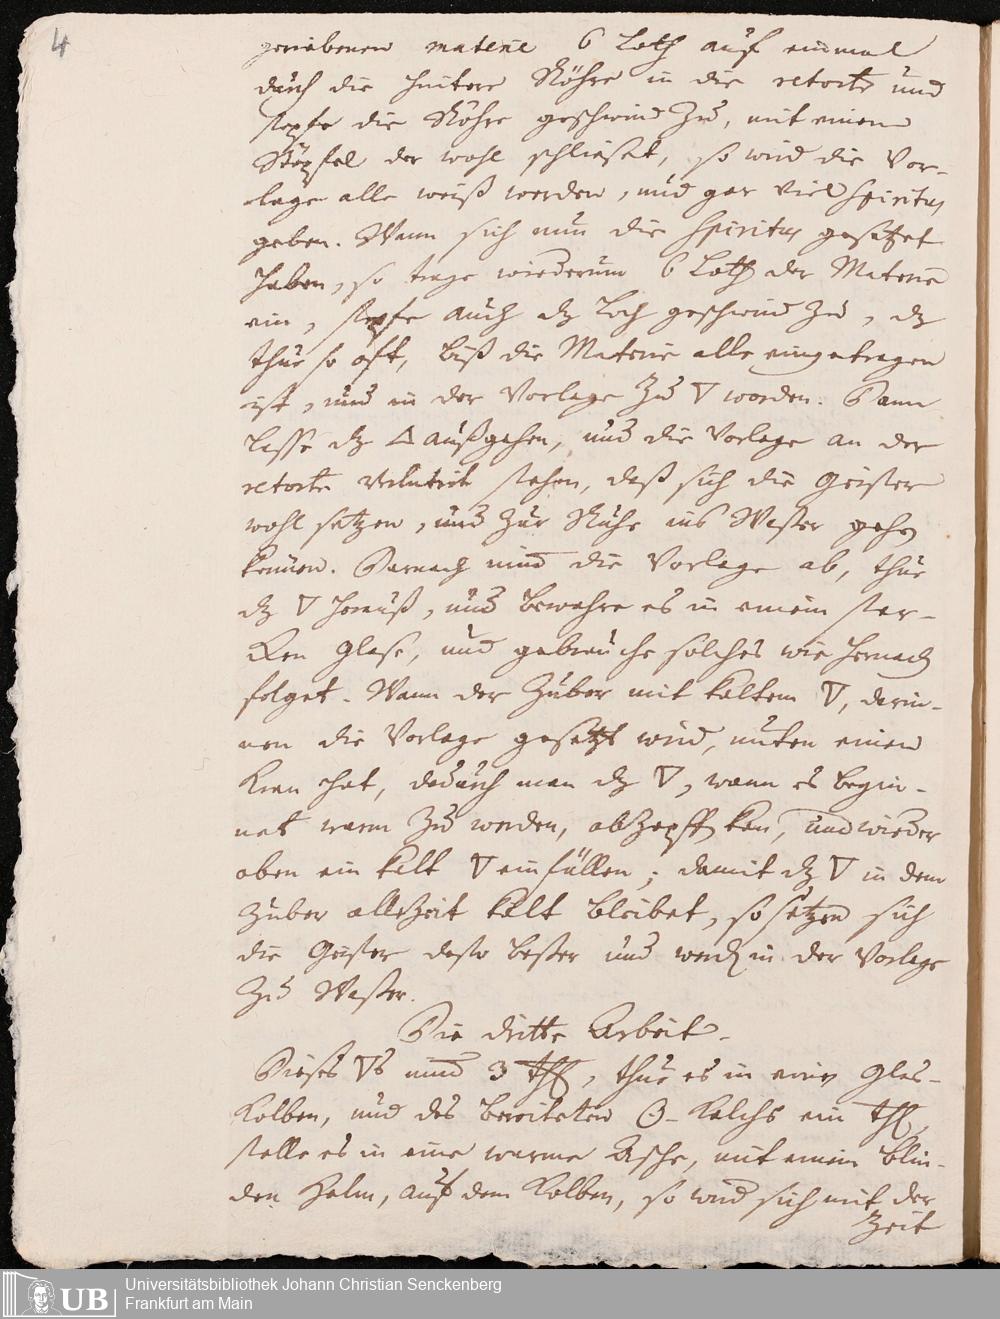 4
geriebenen materie 6 Loth auf einmal
durch die hintere Röhre in die retorte und
stopfe die Röhre geschwind zu, mit einem
Stöpfel der wohl schließet, so wird die Vor-
lage alle weiß werden, und gar viel Spiritus
geben. Wann sich nun die Spiritus gesetzet
haben, so trage wiederum 6 Loth der Materie
ein, stopfe auch dz Loch geschwind zu, dz
thue so oft, biß die Materie alle eingetragen
ist, und in der Vorlage zu 🜄 worden. Dann
lasse dz 🜂 außgehen, und die Vorlage an der
retorte verlutirt stehen, daß sich die Geister
wohl setzen, und zur Ruhe ins Waßer gehen
können. Darnach nimm die Vorlage ab, thue
dz 🜄 herauß, und bewahre es in einem star-
cken Glase, und gebrauche solches wie hernach
folget. Wann der Zuber mit kaltem 🜄, darin-
nen die Vorlage gesetzt wird, unten einen
Kran hat, dadurch man dz 🜄, wann es begin-
net warm zu werden, abzapffen kan, und wieder
oben ein kalt 🜄 einfüllen; damit dz 🜄 in dem
Zuber allezeit kalt bleibet, so setzen sich
die Geister desto beßer und werden in der Vorlage
zu Waßer.
Die dritte Arbeit.
Dieses 🜄s nimm 3 Thl, thue es in einen Glas-
Kolben, und des bereiteten ☉-Kalchs ein Thl,
stelle es in eine warme Asche, mit einem blin-
den Helm, auf dem Kolben, so wird sich mit der
Zeit
UB
Universitätsbibliothek Johann Christian Senckenberg
Frankfurt am Main